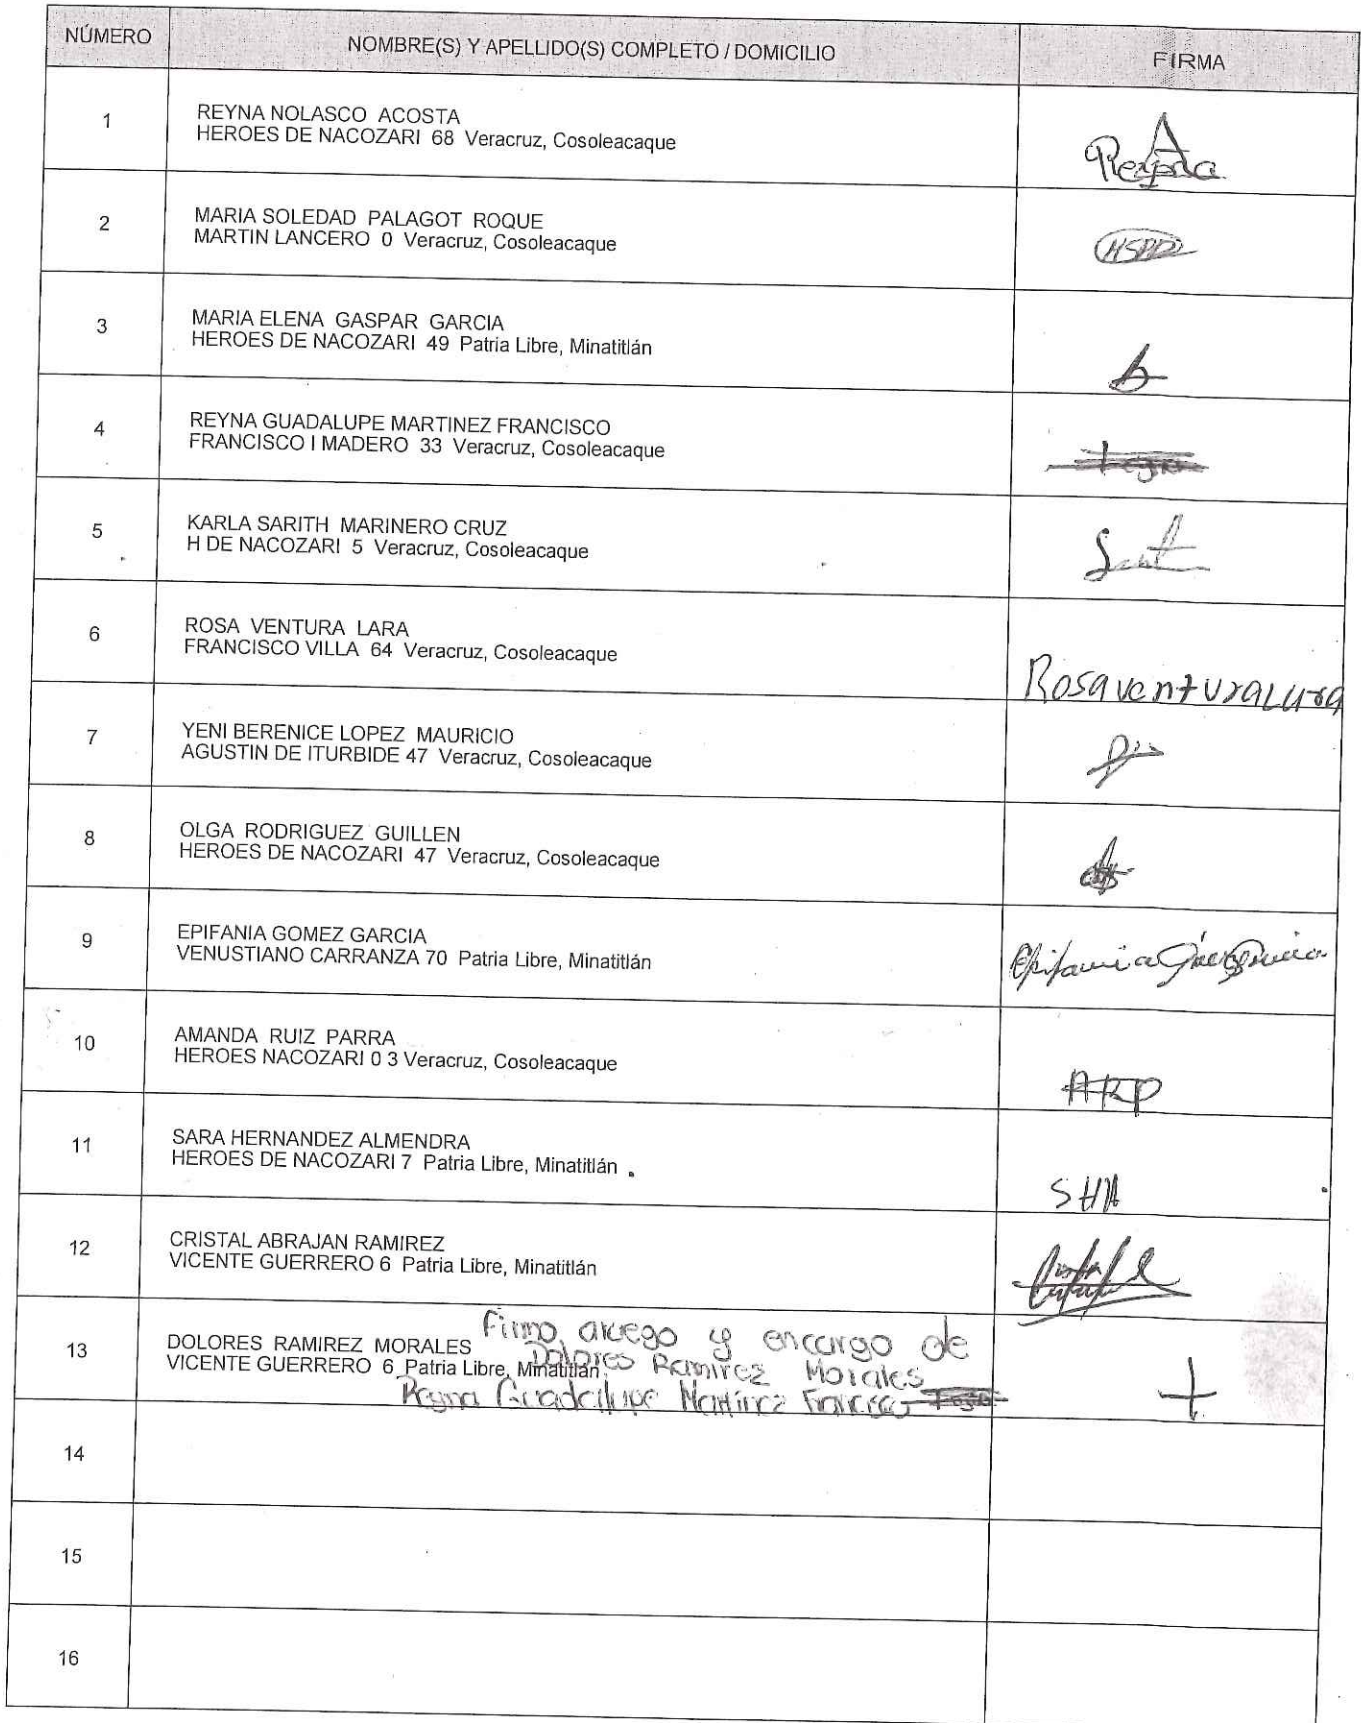 NÚMERO NOMBRE(S) Y APELLIDO(S) COMPLETO / DOMICILIO FIRMA
1 REYNA NOLASCO ACOSTA
HEROES DE NACOZARI 68 Veracruz, Cosoleacaque
2 MARIA SOLEDAD PALAGOT ROQUE
MARTIN LANCERO 0 Veracruz, Cosoleacaque
3 MARIA ELENA GASPAR GARCIA
HEROES DE NACOZARI 49 Patria Libre, Minatitlán
4 REYNA GUADALUPE MARTINEZ FRANCISCO
FRANCISCO I MADERO 33 Veracruz, Cosoleacaque
5 KARLA SARITH MARINERO CRUZ
H DE NACOZARI 5 Veracruz, Cosoleacaque
6 ROSA VENTURA LARA
FRANCISCO VILLA 64 Veracruz, Cosoleacaque
Rosa ventura Lara
7 YENI BERENICE LOPEZ MAURICIO
AGUSTIN DE ITURBIDE 47 Veracruz, Cosoleacaque
8 OLGA RODRIGUEZ GUILLEN
HEROES DE NACOZARI 47 Veracruz, Cosoleacaque
9 EPIFANIA GOMEZ GARCIA
VENUSTIANO CARRANZA 70 Patria Libre, Minatitlán
Epifania
10 AMANDA RUIZ PARRA
HEROES NACOZARI 0 3 Veracruz, Cosoleacaque
ARP
11 SARA HERNANDEZ ALMENDRA
HEROES DE NACOZARI 7 Patria Libre, Minatitlán
SHA
12 CRISTAL ABRAJAN RAMIREZ
VICENTE GUERRERO 6 Patria Libre, Minatitlán
13 DOLORES RAMIREZ MORALES
VICENTE GUERRERO 6 Patria Libre, Minatitlán
Firmo aruego y encargo de
Dolores Ramirez Morales
Reyna Guadalupe Martínez Francisco
14
15
16